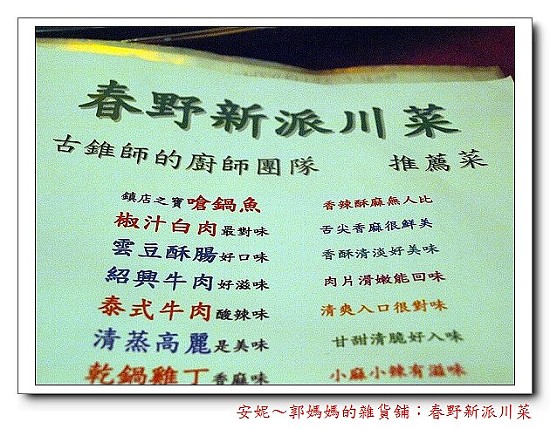 春野新派川菜
古錐師的廚師團隊 推薦菜
鎮店之寶嗆鍋魚 香辣酥麻無人比
椒汁白肉最對味 舌尖香麻很鮮美
雲豆酥腸好口味 香酥清淡好美味
紹興牛肉好滋味 肉片滑嫩能回味
泰式牛肉酸辣味 清爽入口很對味
清蒸高麗是美味 甘甜清脆好入味
乾鍋雞丁香麻味 小麻小辣有滋味
安妮～郭媽媽的雜貨舖：春野新派川菜